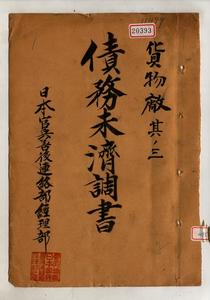 20393
貨物廠其ノ三
債務未済調書
日本官兵善後連絡部経理部